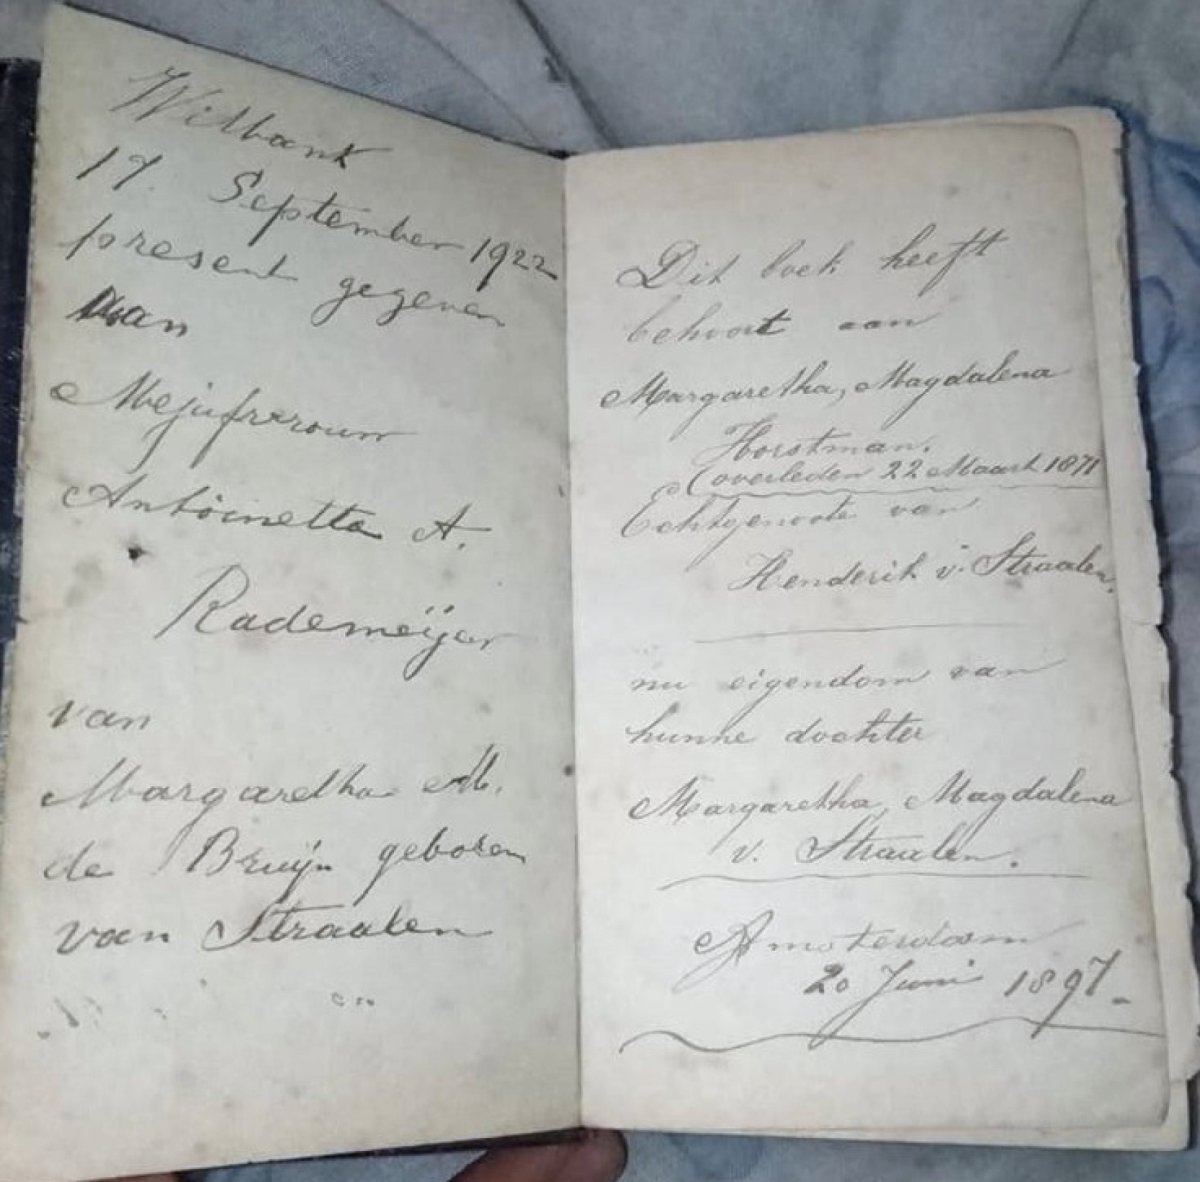 Witbank
17 September 1922
present gegeven
aan
Mejufvrouw
Antoinetta A.
Rademeijer
van
Margaretha M.
de Bruijn geboren
van Straalen
Dit boek heeft
behoort aan
Margaretha, Magdalena
Horstman.
(overleden 22 Maart 1871
Echtgenoote van
Henderik v. Straalen,
nu eigendom van
hunne dochter
Margaretha, Magdalena
v. Straalen.
Amsterdam
20 Juni 1897.